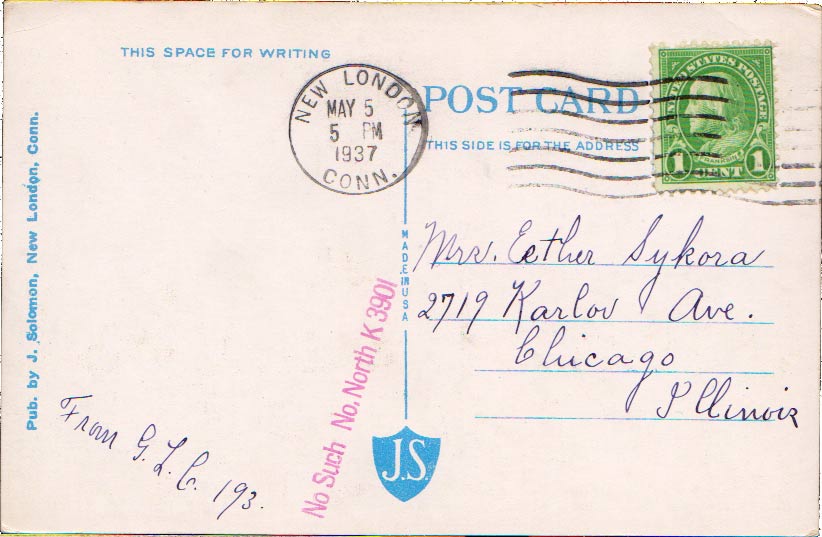 THIS SPACE FOR WRITING
NEW LONDON
MAY 5
5 PM
1937
CONN.
POST CARD
THIS SIDE IS FOR THE ADDRESS
UNITED STATES POSTAGE
FRANKLIN
1 CENT 1
Pub. by J. Solomon, New London, Conn.
MADE IN USA
Mrs. Esther Sykora
2719 Karlov Ave.
Chicago
Illinois
No Such No, North K 3901
From G. L. C. 193.
J.S.